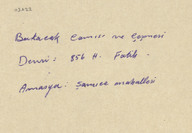 Budacık Camisi ve Çeşmesi
Devri: 856 H. Fatih
Amasya. Şamice mahallesi